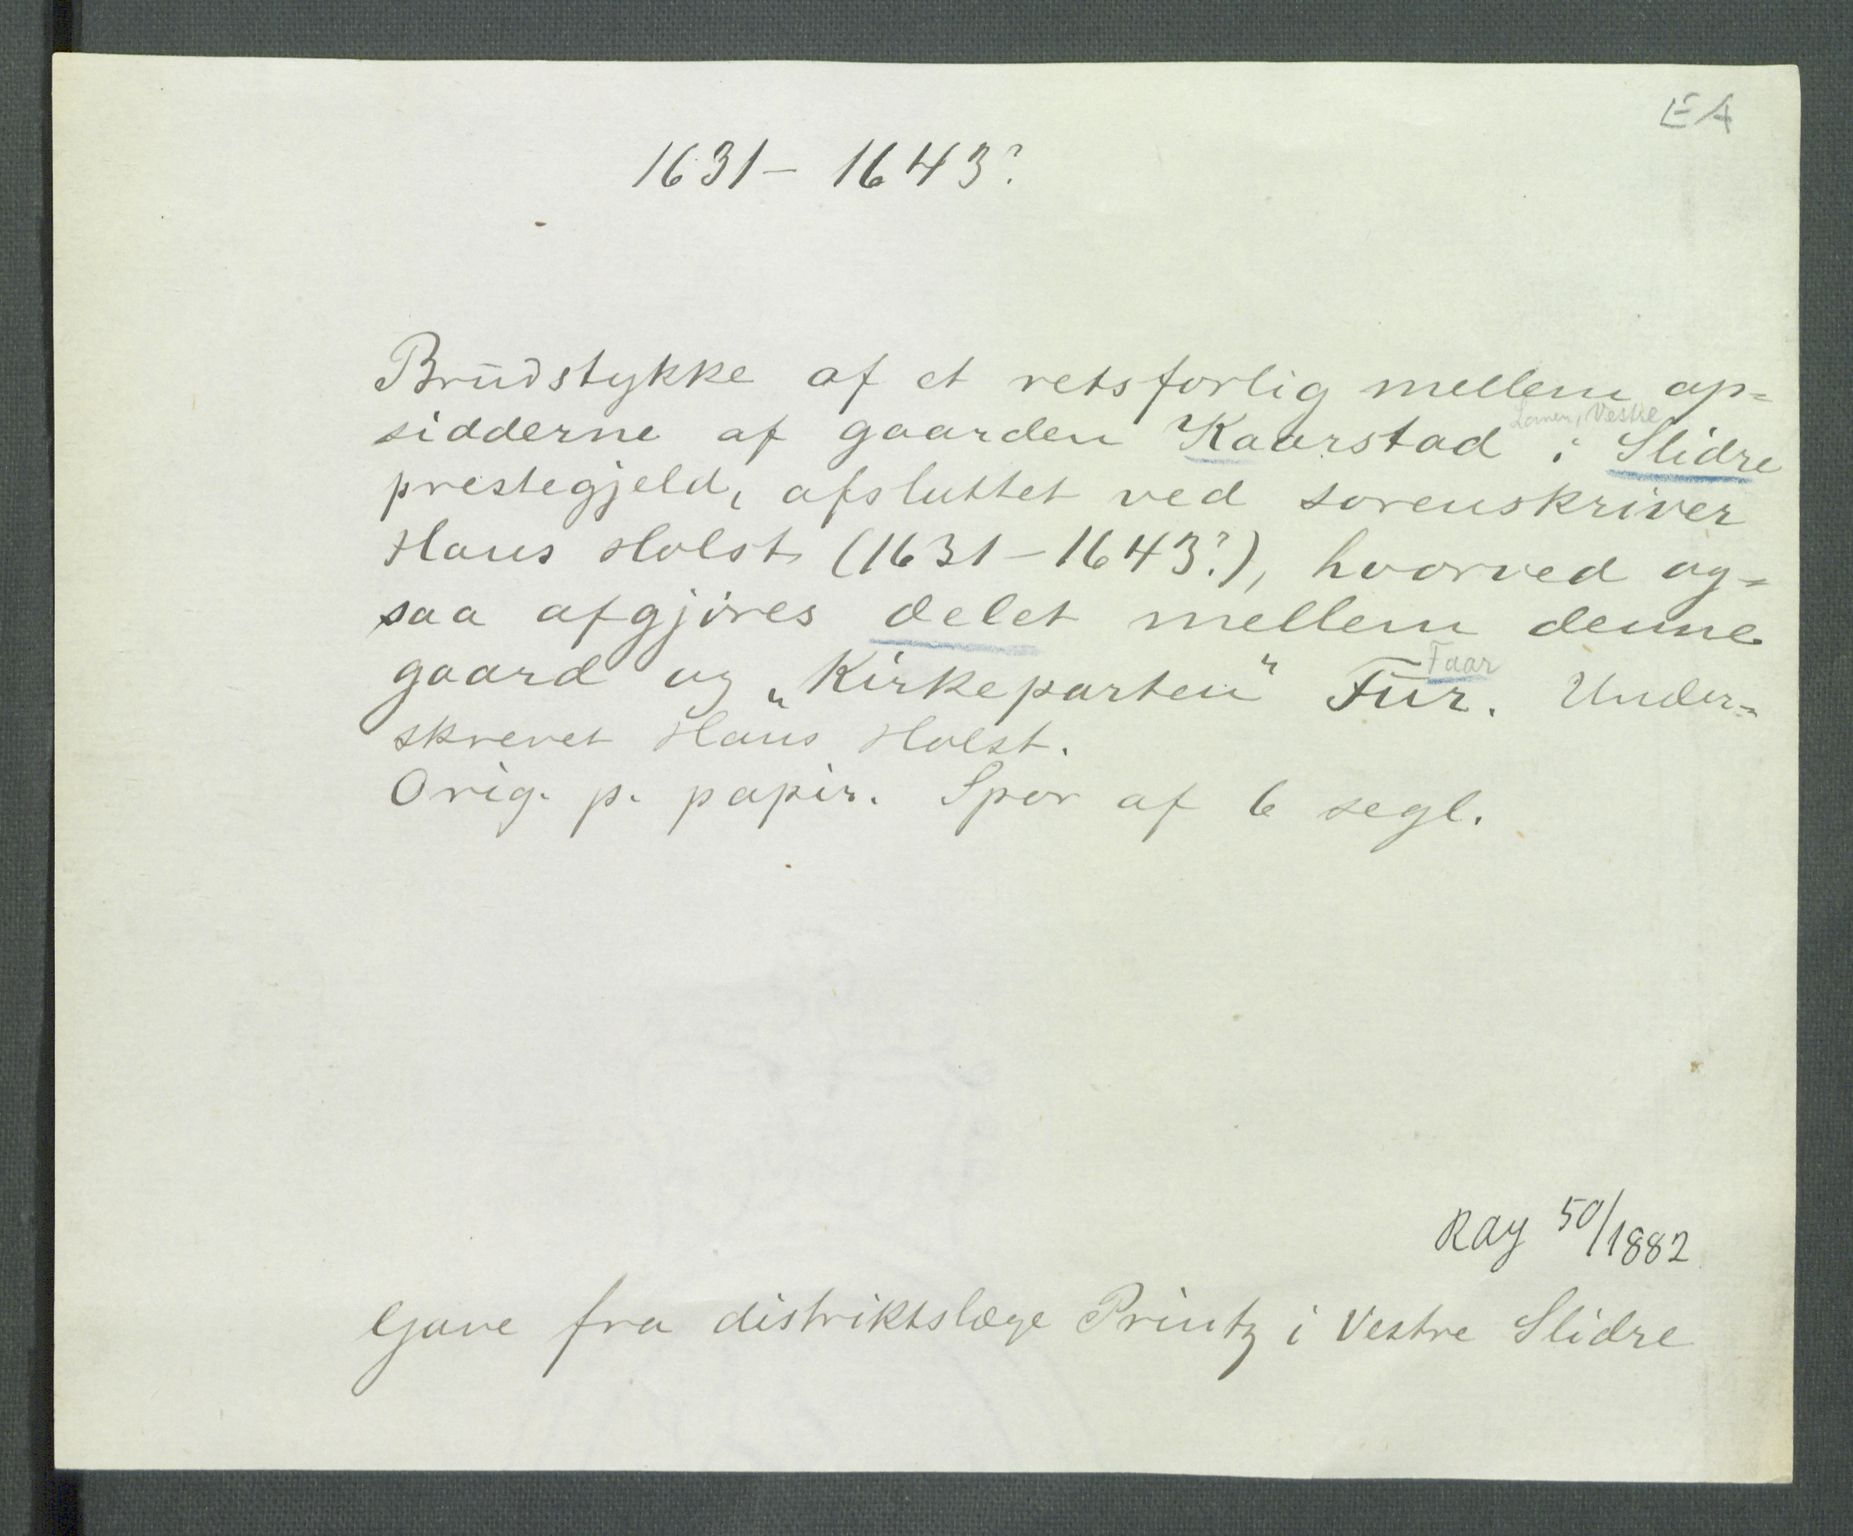 EA
1631 – 1643?
Brudstykke af et retsforlig mellem op=
Lomen, Vestre
sidderne af gaarden Kaarstad i Slidre
prestegjeld, afsluttet ved sorenskriver
Hans Holst (1631–1643?), hvorved og=
saa afgjøres delet mellem denne
Faar
gaard og „Kirkeparten" Fur. Under=
skrevet Hans Holst.
Orig. p. papir. Spor af 6 segl.
RAy 50/1882
Gave fra distriktslæge Printz i Vestre Slidre